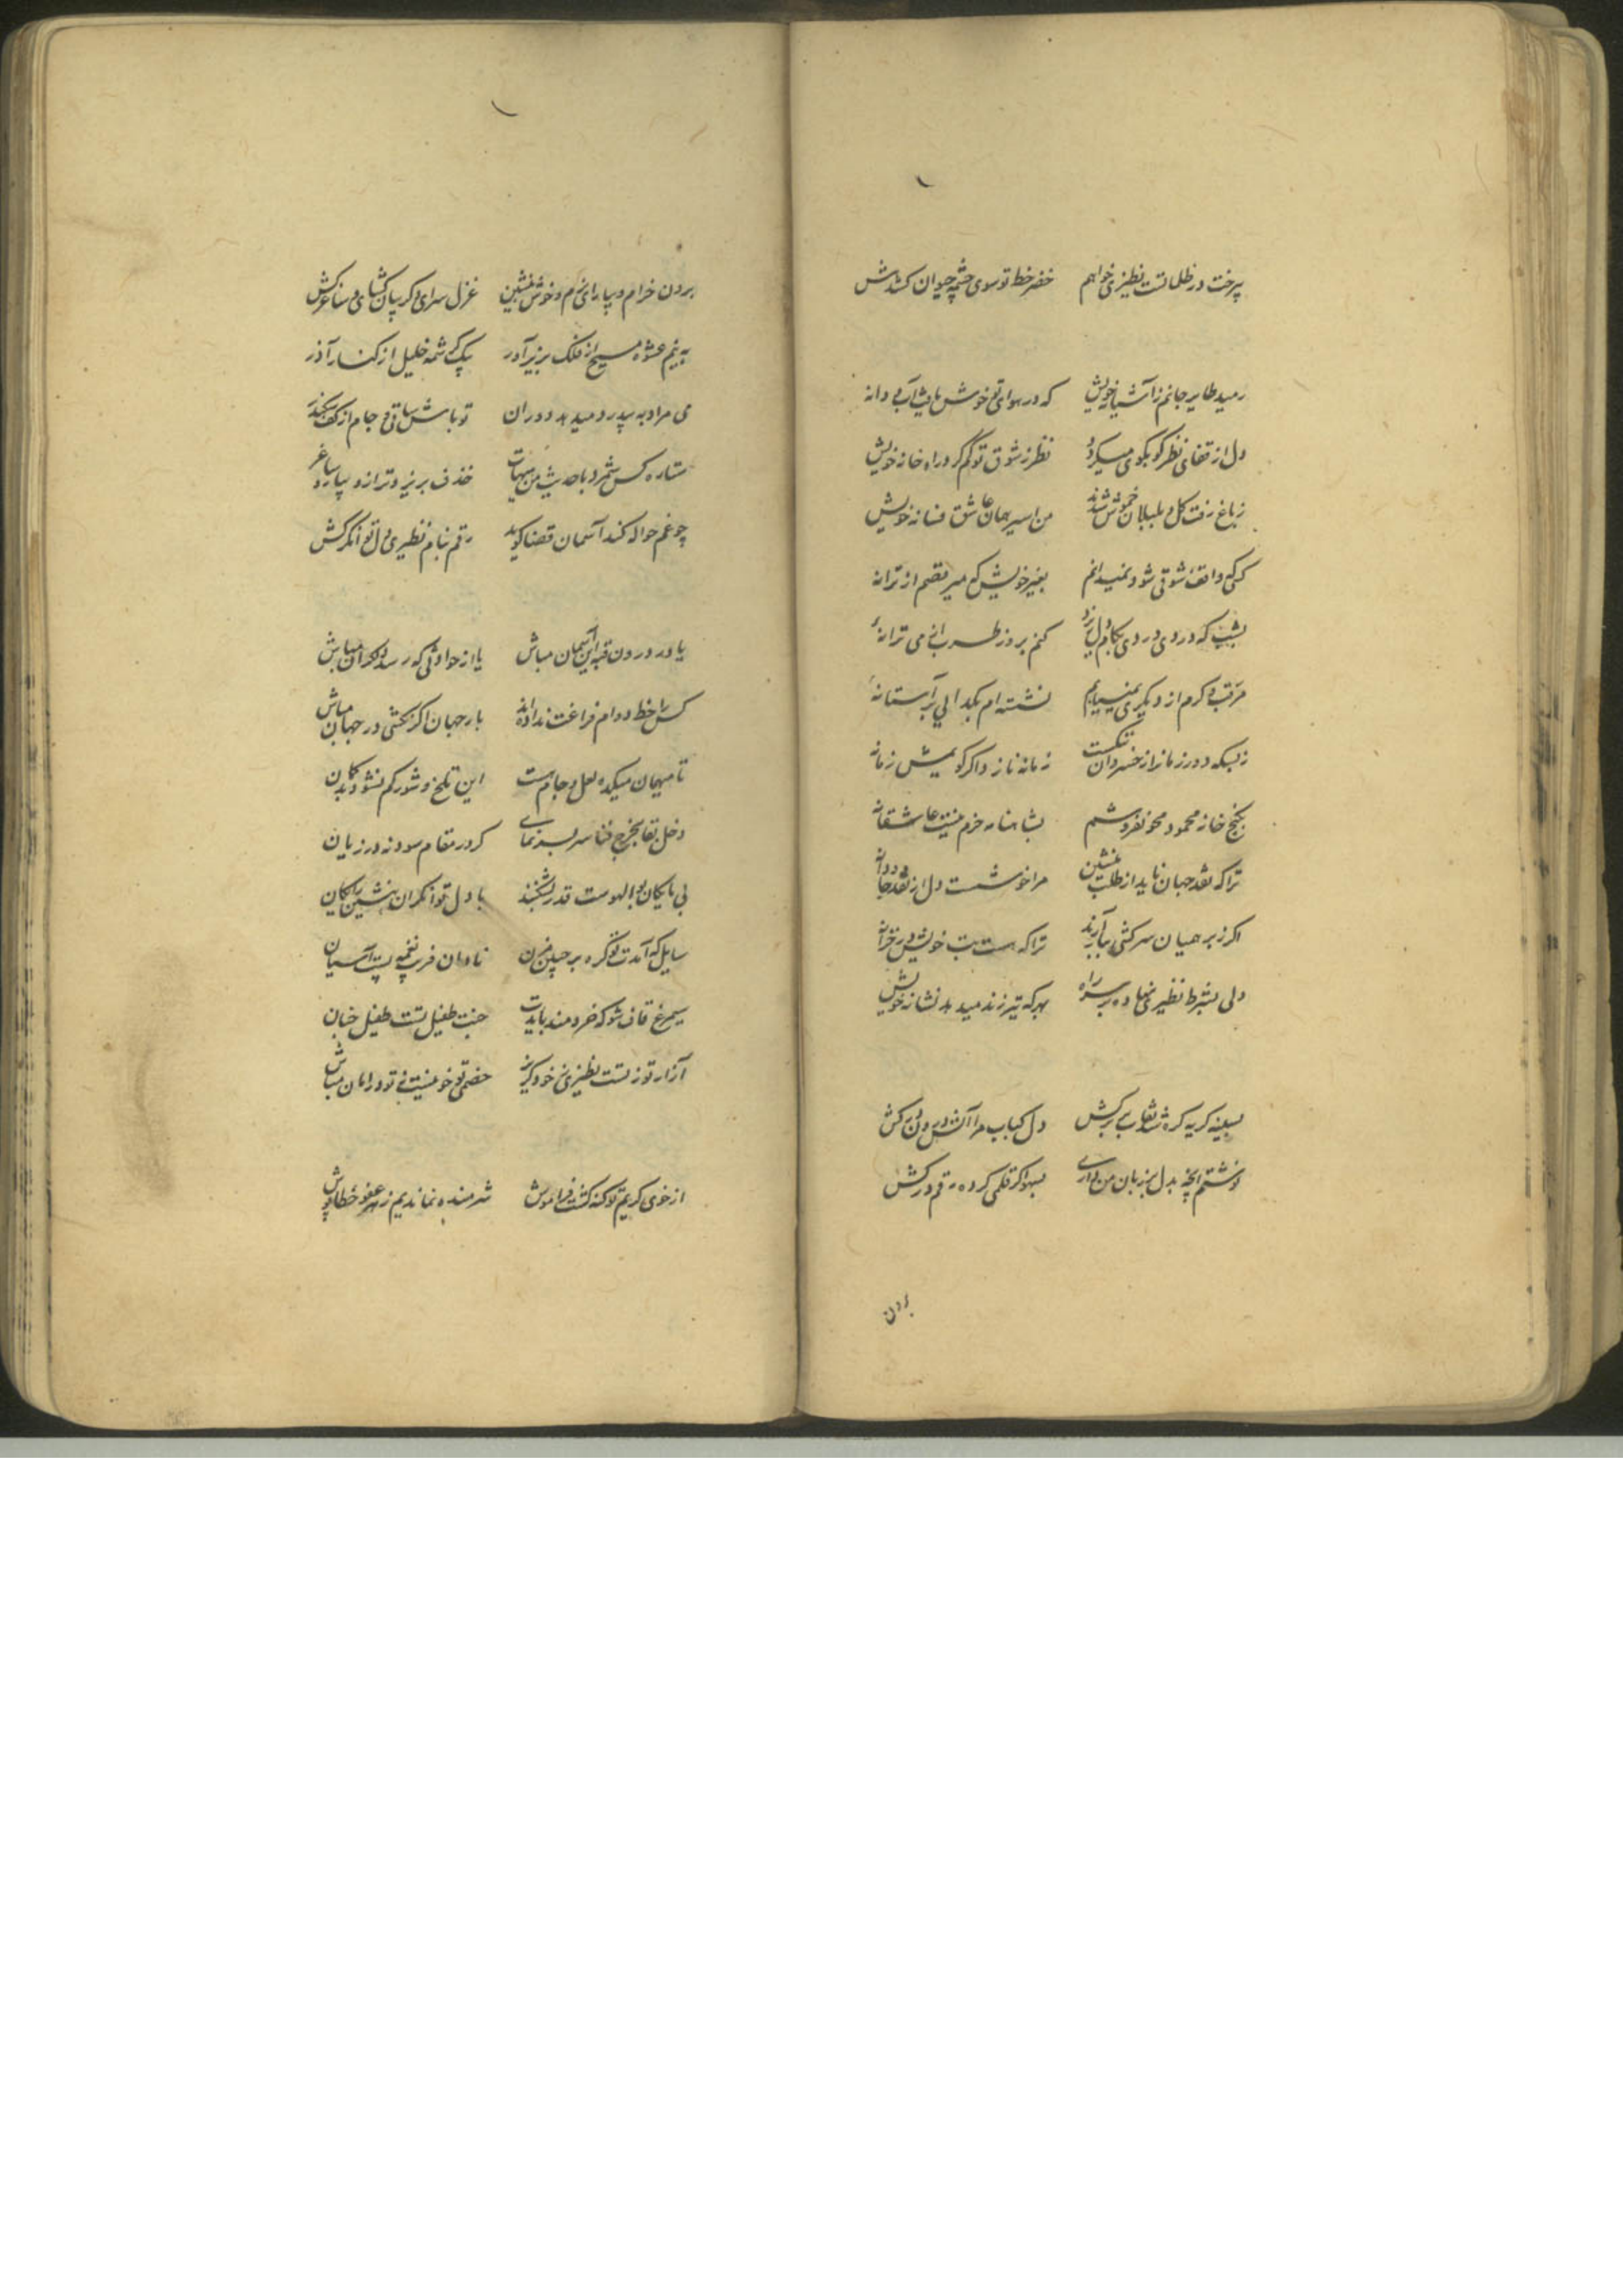 بیرخت در ظلماتست نظیری خواهم خضر خط تو سوی چشمه حیوان کشدش
رمید طایر جانم ز آشیانه خویش که در هوای تو خوش یافت آب و دانه
دل از قفای نظر کو بکوی میگردد نظر ز شوق تو گم کرد راه خانه خویش
ز باغ رفت گل و بلبلان خموش شدند من اسیر همان عاشق فسانه خویش
کسی که واقف شوقی شود نمیدانم بغیر خویش که میرقصم از ترانه
بشب که دردی دردی بکام دل ریزد کنم بروز طرب از می ترانه
مرتب و کرم از دیگری نمییابم نشسته ام بگدایی بر آستانه
ز بسکه دور زمانرا ز خسروان ننگست زمانه نازد اگر گویمش زمانه
بگنج خانه محمود محو نفروشم بشاهنامه خرم بیت عاشقانه
ترا که نقد جهان باید از طلب منشین مرا خوشست دل از نقد جاودانه
اگر ز برهمنان سرکشی بباآرند ترا که هست بت خویش در خزانه
دلی بشرط نظیری نهاده بر سر راه بهر که تیر زند میدهد نشانه خویش
بسینه گریه گره شد نقاب برکش دل کباب مرا آتش درون برکش
نوشتم آنچه بدل بر زبان من داری بسهو گر قلمی کرده رقم درکش
برون
برون خرام و بیارای بزم و خوش بنشین غزل سرای و گریبان گشای و ساغر کش
به نیم عشوه مسیح از فلک بزیر آور بیک کرشمه خلیل از کنار آذر
می مراد به بیدرد میدهد دوران تو باش ساقی و جام از کف سکندر
ستاره کس شمرد با حدیث من هیهات خذف بریز و ترازو بیار و ساغر
چو غم حواله کند آسمان قضا گوید رقم بنام نظیری دل توانگر کش
یا در درون قبه این آسمان مباش یا از حوادثی که رسد دلگران مباش
کس را خط دوام فراغت نداده اند بار جهان اگر نکشی در جهان مباش
تا میهمان میکده لعل و جام هست این تلخ و شور کم نشود بدگمان
دخل بقا بخرج فنا سر بسر نمای گر در مقام سود نه در زیان
بی مایگان بوالهوست قدر بشکنند با دل توانگران بنشین رایگان
سایل که آمدت تو گره بر جبین مزن نادان فریب نغمه پست آسیان
سیمرغ قاف شو که خردمند بایدت جنت طفیل تست طفیل جنان
آزار تو ز تست نظیری ز خود گریز خصمی تو خو نیست ز تو در امان مباش
از خوی کریم تو گنه گشت فراموش شرمنده نماندیم ز عفو خطاپوش